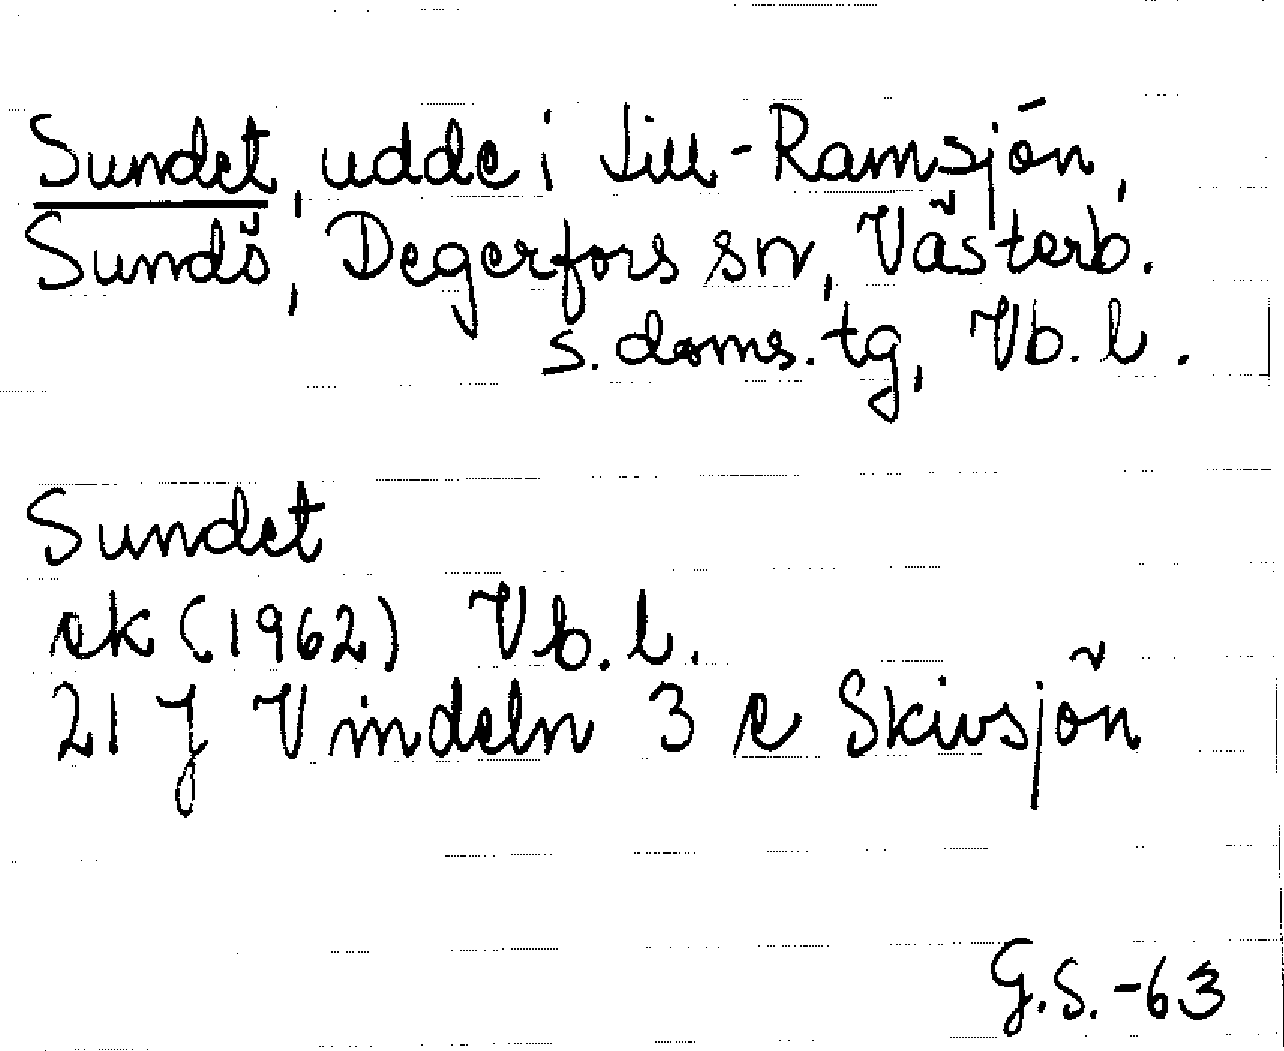 Sundet, udde i Lill-Ramsjön,
Sundö, Degerfors sn, Västerb.
s. doms. tg, Vb. l.
Sundet
ek (1962) Vb. l.
21 J Vindeln 3 e Skivsjön
G.S. -63